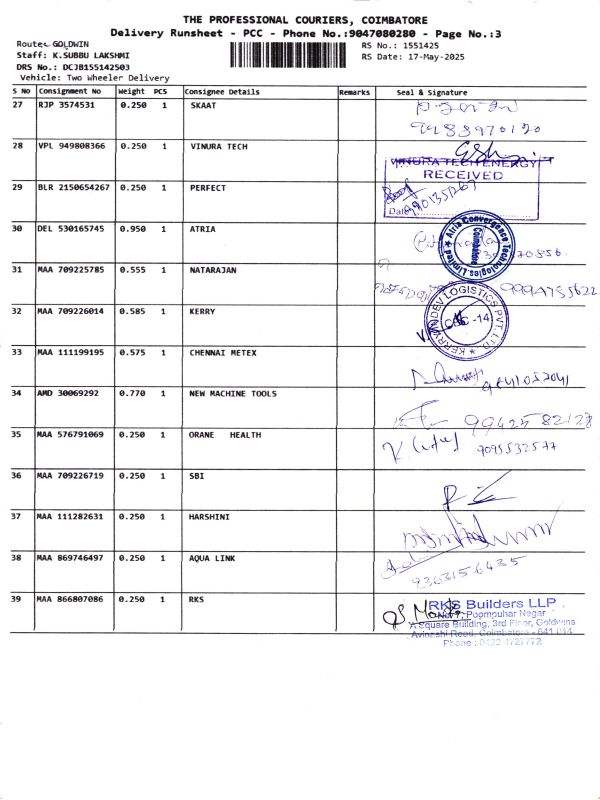 THE PROFESSIONAL COURIERS, COIMBATORE
Delivery Runsheet - PCC - Phone No.:9047080280 - Page No.:3
Route: GOLDWIN
RS No.: 1551425
Staff: K.SUBBU LAKSHMI
RS Date: 17-May-2025
DRS No.: DCJB155142503
Vehicle: Two Wheeler Delivery
S No Consignment No Weight PCS Consignee Details Remarks Seal & Signature
27 RJP 3574531 0.250 1 SKAAT
9988970120
28 VPL 949808366 0.250 1 VINURA TECH
VINURA TECH ENERGY
RECEIVED
29 BLR 2150654267 0.250 1 PERFECT
Date
30 DEL 530165745 0.950 1 ATRIA
Atria Convergence Technologies Limited
Coimbatore
31 MAA 709225785 0.555 1 NATARAJAN
32 MAA 709226014 0.585 1 KERRY
KERRY INDEV LOGISTICS PVT. LTD
CBE -14
33 MAA 111199195 0.575 1 CHENNAI METEX
9841052041
34 AMD 30069292 0.770 1 NEW MACHINE TOOLS
9942582128
35 MAA 576791069 0.250 1 ORANE HEALTH
9095532577
36 MAA 709226719 0.250 1 SBI
37 MAA 111282631 0.250 1 HARSHINI
38 MAA 869746497 0.250 1 AQUA LINK
9363156435
39 MAA 866807086 0.250 1 RKS
RKS Builders LLP
Poompuhar Nagar
A Square Building, 3rd Floor, Goldwins
Avinashi Road, Coimbatore - 641 014
Phone : 0422 4727772